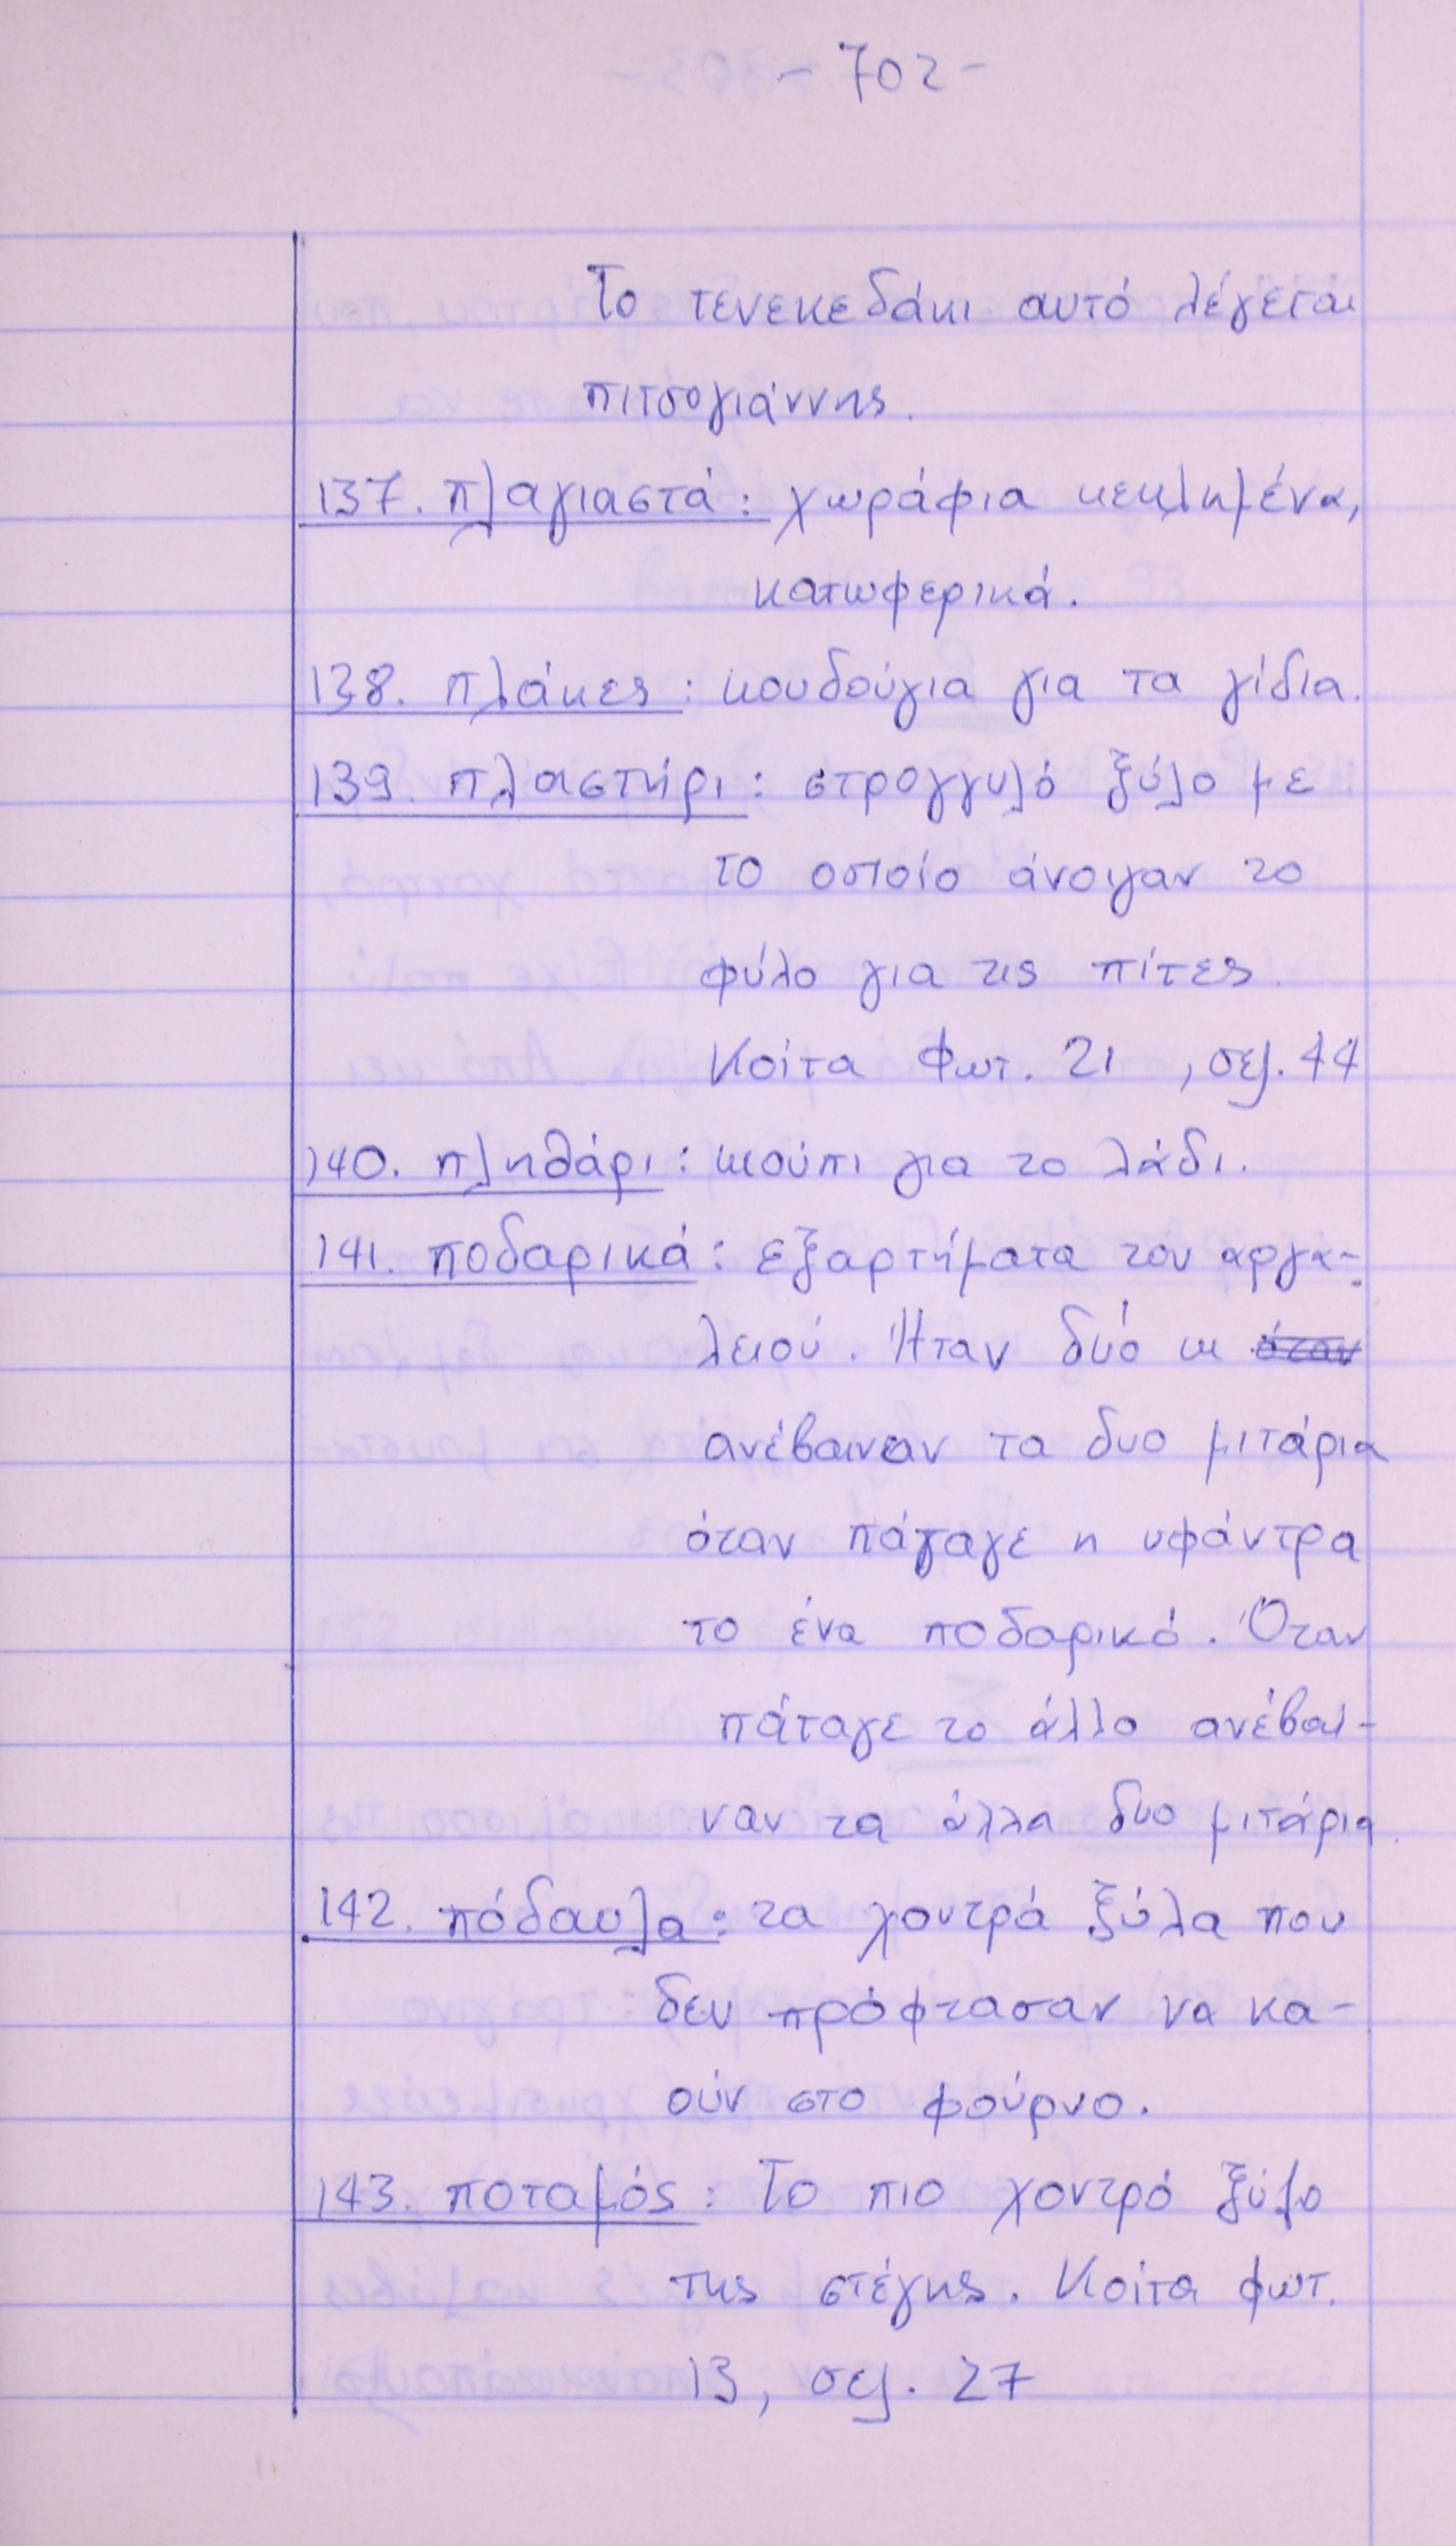 - 702 -
Το τενεκεδάκι αυτό λέγεται
πιτσογιάννης.
137. πλαγιαστά: χωράφια κεκλημένα,
κατωφερικά.
138. πλάκες: κουδούγια για τα γίδια.
139. πλαστήρι: στρογγυλό ξύλο με
το οποίο άνοιγαν το
φύλο για τις πίτες.
Κοίτα Φωτ. 21 , σελ. 44
140. πληθάρι: κιούπι για το λάδι.
141. ποδαρικά: εξαρτήματα του αργα-
λειού. Ήταν δυό κι όταν
ανέβαιναν τα δυο μιτάρια
όταν πάταγε η υφάντρα
το ένα ποδαρικό. Όταν
πάταγε το άλλο ανέβαι-
ναν τα άλλα δυο μιτάρια.
142. πόδαυλα: τα χοντρά ξύλα που
δεν πρόφτασαν να κα-
ούν στο φούρνο.
143. ποταμός: Το πιο χοντρό ξύλο
της στέγης. Κοίτα φωτ.
13, σελ. 27